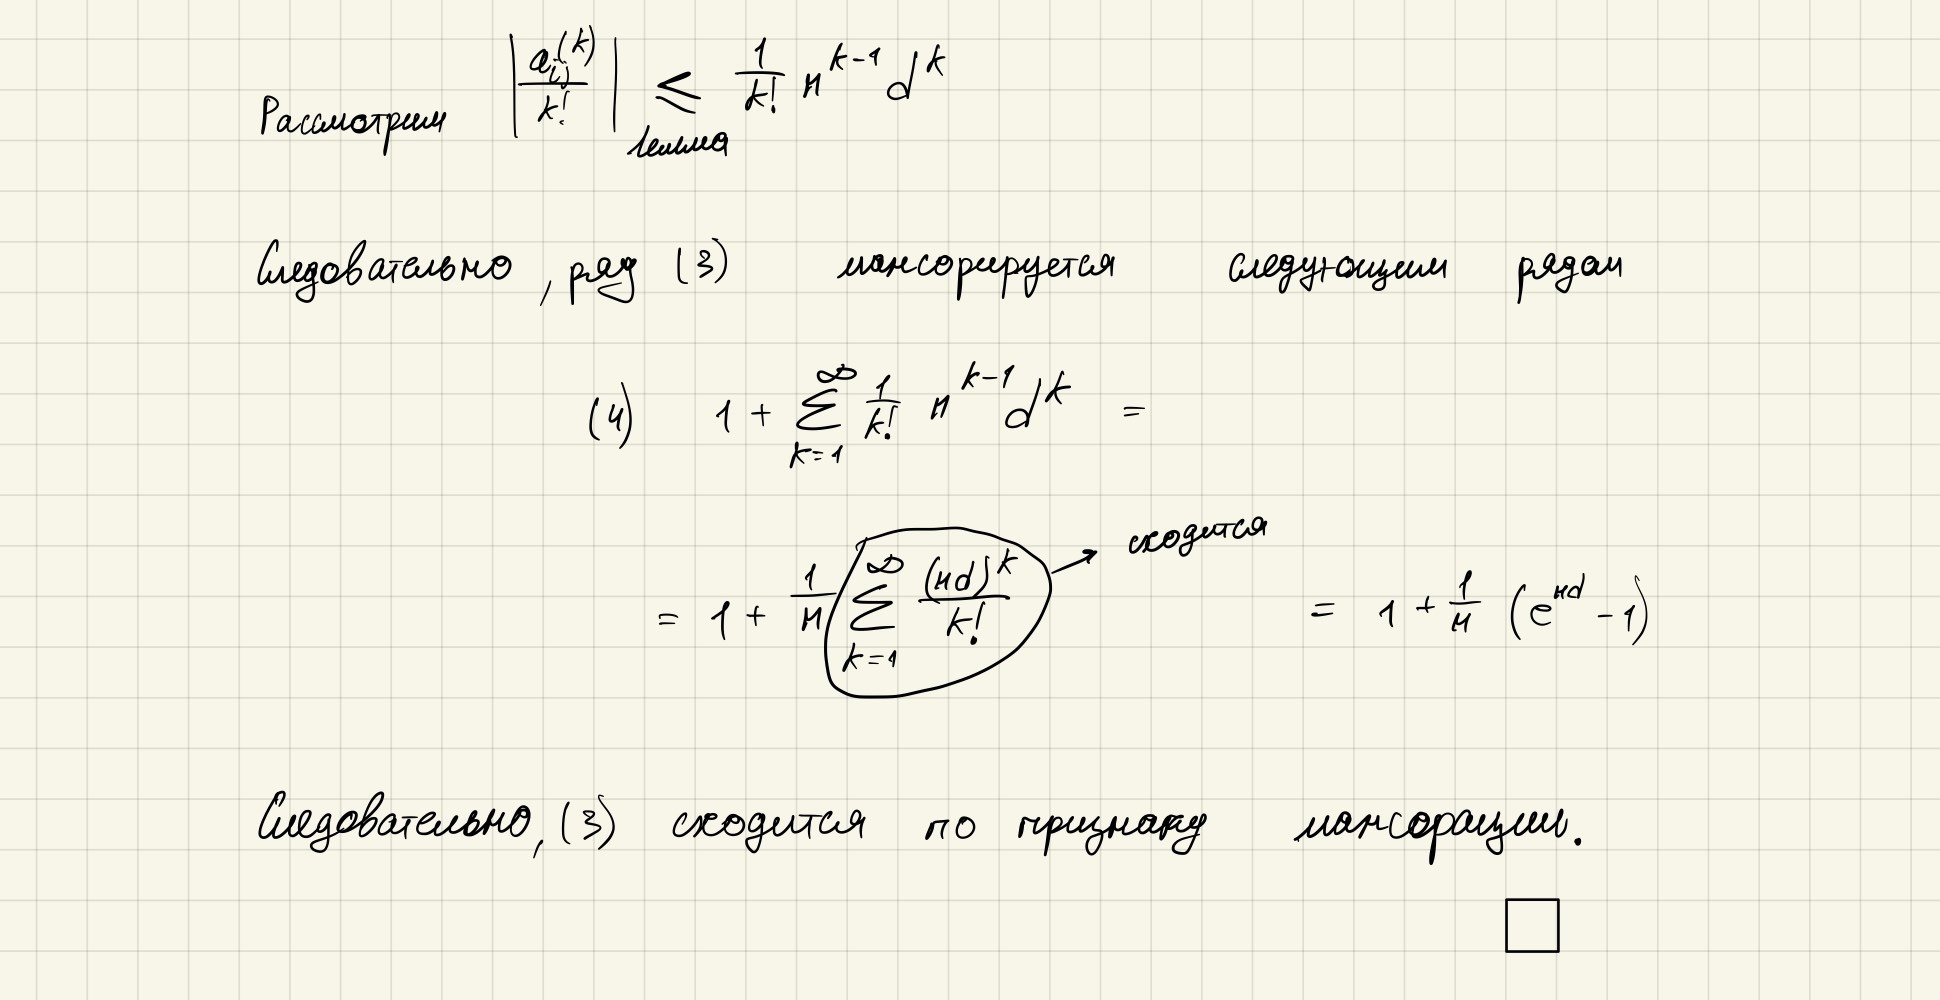 Рассмотрим |a_{ij}^{(k)} / k!| ≤ 1/k! n^{k-1} d^k
лемма
Следовательно, ряд (3) мажорируется следующим рядом
(4) 1 + ∑_{k=1}^{∞} 1/k! n^{k-1} d^k =
= 1 + 1/n ∑_{k=1}^{∞} (nd)^k / k! → сходится = 1 + 1/n (e^{nd} - 1)
Следовательно, (3) сходится по признаку мажорации.